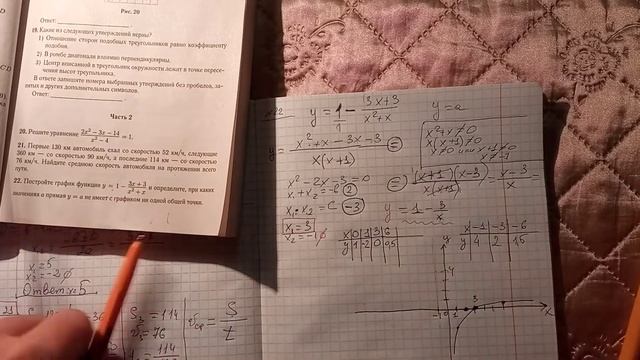 Рис. 20
Ответ:
19. Какие из следующих утверждений верны?
1) Отношение сторон подобных треугольников равно коэффициенту
подобия.
2) В ромбе диагонали взаимно перпендикулярны.
3) Центр вписанной в треугольник окружности лежит в точке пересе-
чения высот треугольника.
В ответе запишите номера выбранных утверждений без пробелов, за-
пятых и других дополнительных символов.
Ответ:
Часть 2
20. Решите уравнение (2x² − 3x − 14)/(x² − 4) = 1.
21. Первые 130 км автомобиль ехал со скоростью 52 км/ч, следующие
360 км — со скоростью 90 км/ч, а последние 114 км — со скоростью
76 км/ч. Найдите среднюю скорость автомобиля на протяжении всего
пути.
22. Постройте график функции y = 1 − (3x + 3)/(x² + x) и определите, при каких
значениях a прямая y = a не имеет с графиком ни одной общей точки.
x₁ = 5
x₂ = −2 ∅
Ответ: 5
21
S₃ = 114
v₃ = 76
vср = S/t
y = 1/1 − (3x+3)/(x²+x) y = a
y = (x² + x − 3x − 3)/(x(x+1)) =
x² + x ≠ 0
x(x+1) ≠ 0
x² − 2x − 3 = 0
x₁ + x₂ = −b 2
x₁ · x₂ = c −3
x₁ = 3
= ((x+1)(x−3))/(x(x+1)) = (x−3)/x =
y = 1 − 3/x
x 0 1 3 6
y 1 -2 0 0,5
x -1 -3 -6
y 4 2 1,5
y
x